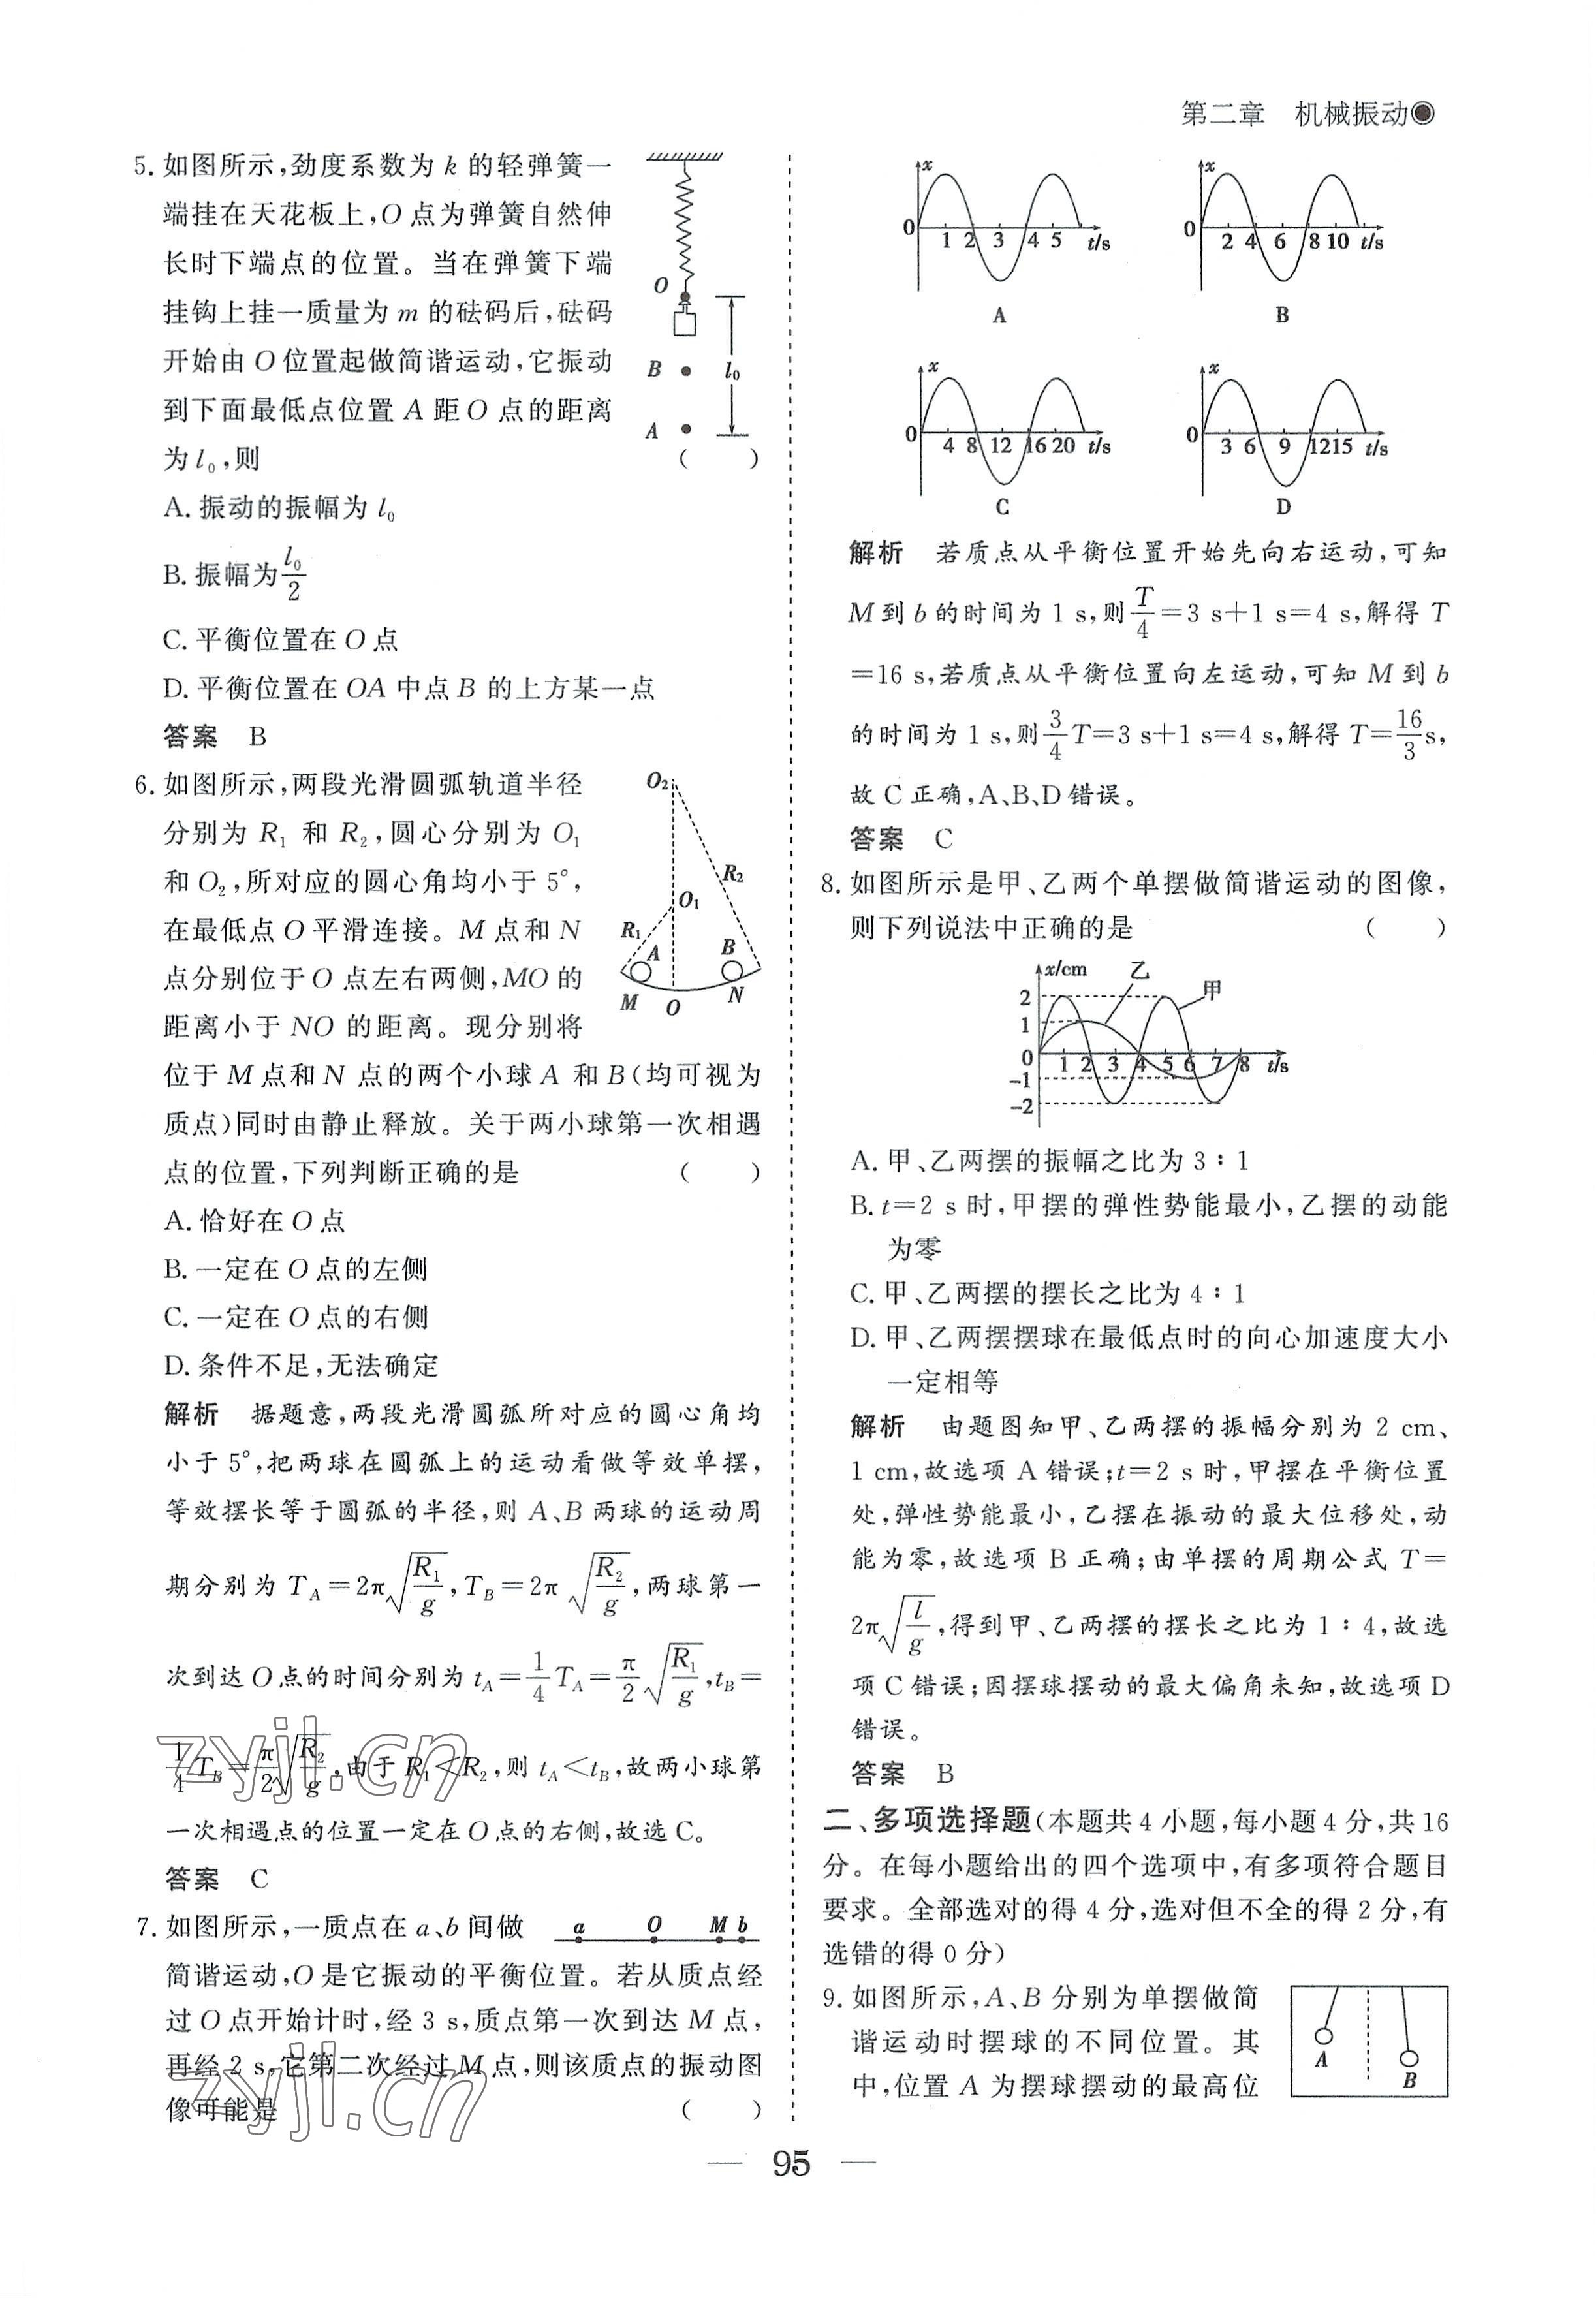 第二章 机械振动
5. 如图所示,劲度系数为 k 的轻弹簧一
端挂在天花板上,O 点为弹簧自然伸
长时下端点的位置。当在弹簧下端
挂钩上挂一质量为 m 的砝码后,砝码
开始由 O 位置起做简谐运动,它振动
到下面最低点位置 A 距 O 点的距离
为 l₀,则 ( )
O
B
l₀
A
A. 振动的振幅为 l₀
B. 振幅为 l₀/2
C. 平衡位置在 O 点
D. 平衡位置在 OA 中点 B 的上方某一点
答案 B
6. 如图所示,两段光滑圆弧轨道半径
分别为 R₁ 和 R₂,圆心分别为 O₁
和 O₂,所对应的圆心角均小于 5°,
在最低点 O 平滑连接。M 点和 N
点分别位于 O 点左右两侧,MO 的
距离小于 NO 的距离。现分别将
位于 M 点和 N 点的两个小球 A 和 B(均可视为
质点)同时由静止释放。关于两小球第一次相遇
点的位置,下列判断正确的是 ( )
O₂
R₂
O₁
R₁
A
B
M
O
N
A. 恰好在 O 点
B. 一定在 O 点的左侧
C. 一定在 O 点的右侧
D. 条件不足,无法确定
解析 据题意,两段光滑圆弧所对应的圆心角均
小于 5°,把两球在圆弧上的运动看做等效单摆,
等效摆长等于圆弧的半径,则 A、B 两球的运动周
期分别为 T_A=2π√(R₁/g),T_B=2π√(R₂/g),两球第一
次到达 O 点的时间分别为 t_A=1/4 T_A=π/2 √(R₁/g),t_B=
1/4 T_B=π/2 √(R₂/g),由于 R₁<R₂,则 t_A<t_B,故两小球第
一次相遇点的位置一定在 O 点的右侧,故选 C。
答案 C
7. 如图所示,一质点在 a、b 间做
a O M b
简谐运动,O 是它振动的平衡位置。若从质点经
过 O 点开始计时,经 3 s,质点第一次到达 M 点,
再经 2 s,它第二次经过 M 点,则该质点的振动图
像可能是 ( )
zyjl.cn
zyjl.cn
x
0 1 2 3 4 5 t/s
A
x
0 2 4 6 8 10 t/s
B
x
0 4 8 12 16 20 t/s
C
x
0 3 6 9 12 15 t/s
D
解析 若质点从平衡位置开始先向右运动,可知
M 到 b 的时间为 1 s,则 T/4=3 s+1 s=4 s,解得 T
=16 s,若质点从平衡位置向左运动,可知 M 到 b
的时间为 1 s,则 3/4 T=3 s+1 s=4 s,解得 T=16/3 s,
故 C 正确,A、B、D 错误。
答案 C
8. 如图所示是甲、乙两个单摆做简谐运动的图像,
则下列说法中正确的是 ( )
x/cm
乙
甲
2
1
0 1 2 3 4 5 6 7 8 t/s
-1
-2
A. 甲、乙两摆的振幅之比为 3∶1
B. t=2 s 时,甲摆的弹性势能最小,乙摆的动能
为零
C. 甲、乙两摆的摆长之比为 4∶1
D. 甲、乙两摆摆球在最低点时的向心加速度大小
一定相等
解析 由题图知甲、乙两摆的振幅分别为 2 cm、
1 cm,故选项 A 错误;t=2 s 时,甲摆在平衡位置
处,弹性势能最小,乙摆在振动的最大位移处,动
能为零,故选项 B 正确;由单摆的周期公式 T=
2π√(l/g),得到甲、乙两摆的摆长之比为 1∶4,故选
项 C 错误;因摆球摆动的最大偏角未知,故选项 D
错误。
答案 B
二、多项选择题(本题共 4 小题,每小题 4 分,共 16
分。在每小题给出的四个选项中,有多项符合题目
要求。全部选对的得 4 分,选对但不全的得 2 分,有
选错的得 0 分)
9. 如图所示,A、B 分别为单摆做简
谐运动时摆球的不同位置。其
中,位置 A 为摆球摆动的最高位
A
B
— 95 —